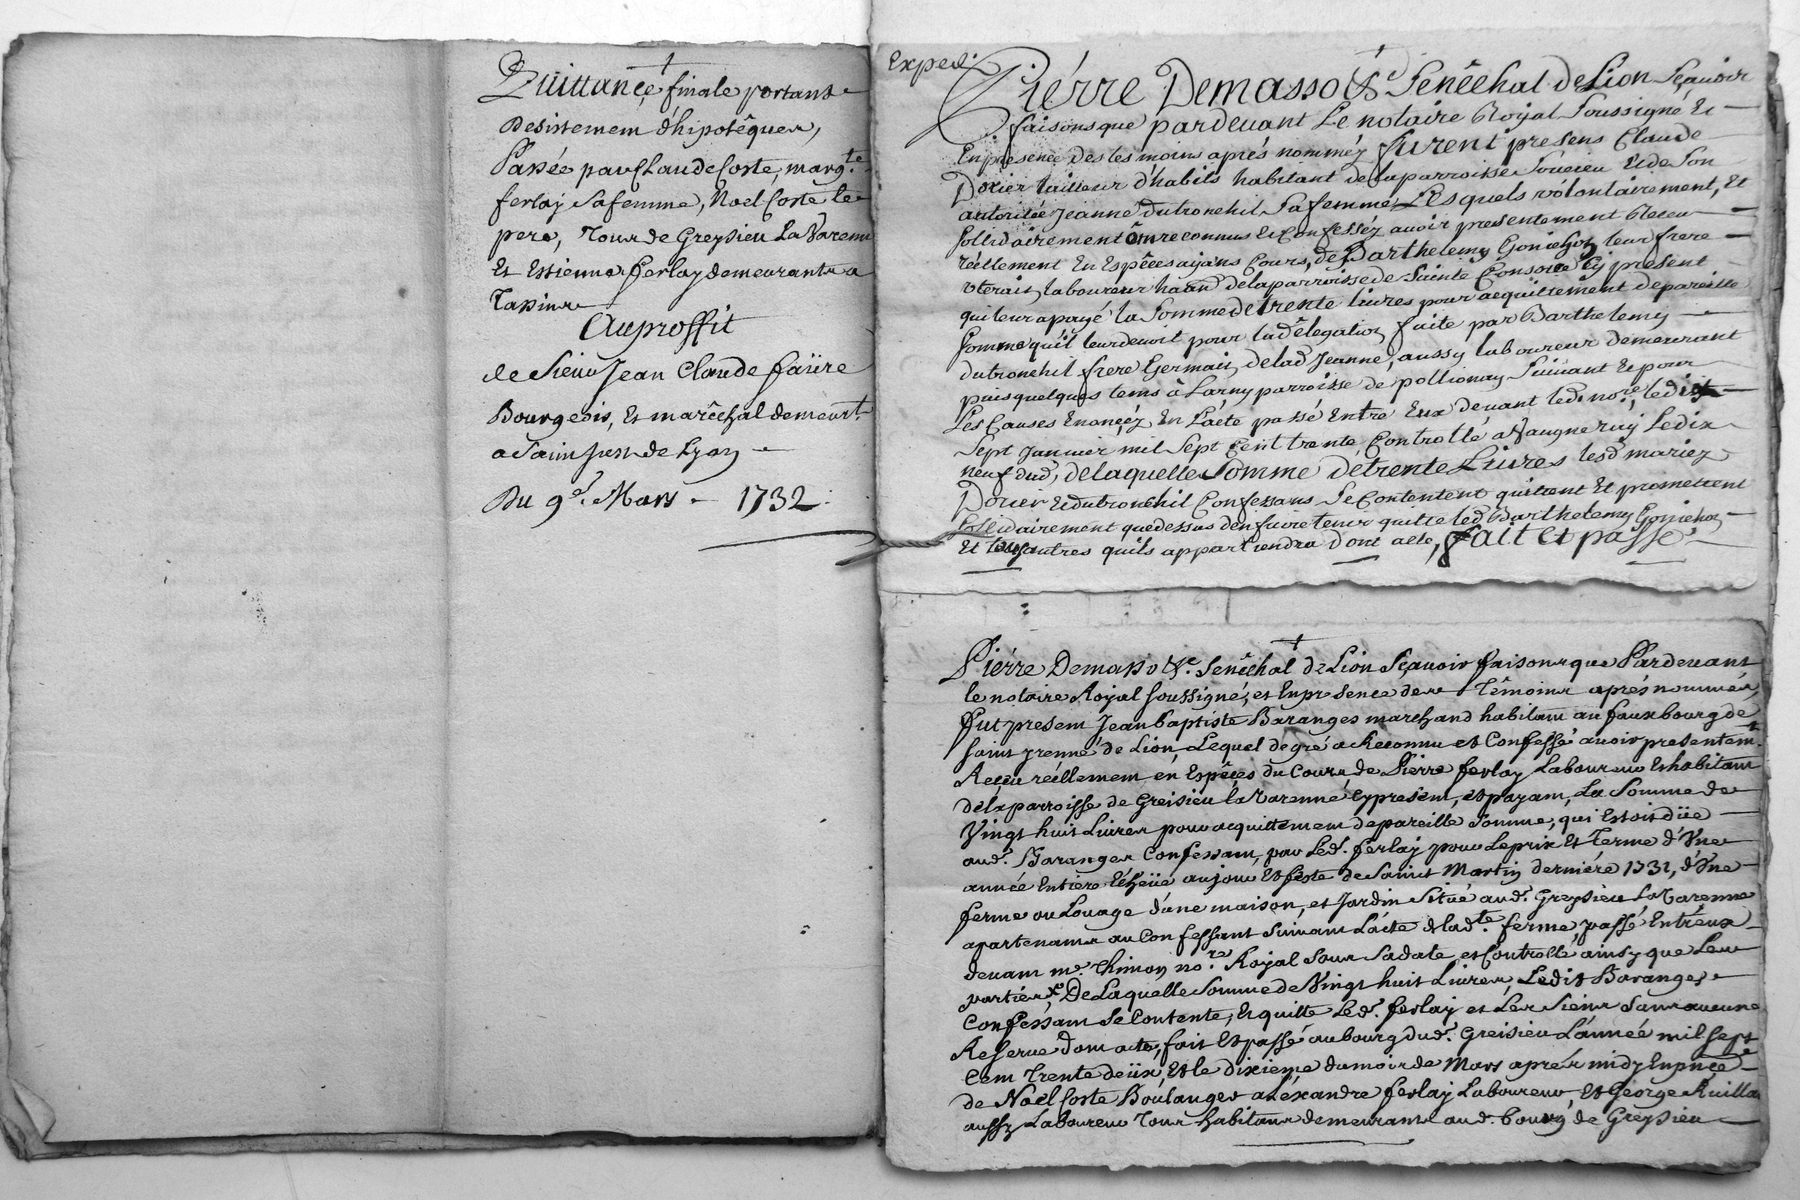 Quittance finale portant
Desistement d'hipotêques,
Passée par Claude Coste, marg.te
ferlay sa femme, Noel Coste le
pere, Tous de Greysieu La Varenne
Et Estienne ferlay demeurant a
Tassins
Au proffit
de Sieur Jean Claude faüre
Bourgeois, Et marêchal demeur.t
a Saint Just de Lyon
Du 9.e Mars 1732
Exped.
Pierre Demasso &c Senêchal de Lion Sçavoir
faisons que pardevant Le notaire Roÿal Soussigné Et
En presence des tesmoins aprés nomméz furent presens Claude
Dozier tailleur d'habits habitant de la parroisse Soucieu Et de Son
autoritée Jeanne dutronchil Sa femme Lesquels volontairement, Et
Sollidairement ont reconnus Et Confesséz avoir presentement Receu
réellement En Espêces aÿans Cours, de Barthelemy Gonichon leur frere
uterain, laboureur habitant de la parroisse de Sainte Consorce Cÿ present
qui leur a payé la Somme de trente livres pour acquittement de pareille
Somme qu'il leur devoit pour la dêlegation faite par Barthelemy
dutronchil frere Germain de lad. Jeanne, aussy laboureur demeurant
puis quelques tems à Larny parroisse de pollionay Suivant Et pour
Les Causes Enoncéez En L'acte passé Entre Eux devant led. no.re, le dix
Sept Janvier mil Sept Cent trente Controllé a Vaugneray Le dix
neuf dud., de laquelle Somme de trente Livres lesd. mariez
Dozier Et dutronchil Confessans Se Contentent quittent Et promettent
Sollidairement que dessus d'en faire tenir quitte led. Barthelemy Gonichon
Et tous autres qu'ils appartiendra dont acte, fait Et passé
Pierre Demasso &c. Senêchal de Lion Sçavoir faisons que Pardevant
le notaire Roÿal soussigné, et En presence des Têmoins aprés nommés,
fut present Jean Baptiste Baranges marchand habitant au fauxbourg de
Saint yrenné de Lion, Lequel de gré a Reconnu et Confessé avoir presentem.t
Reçeu réellement en Espêces du Cours, de Pierre ferlay Laboureur Et habitant
de la parroisse de Greisieu la Varenne cy present, et payant, La Somme de
Vingt huit Livres pour acquittement de pareille Somme, qui Estoit düe
aud. Baranges Confessant, par Led. ferlay pour Le prix Et Terme d'Une
année Entiere Echeüe au jour Et feste de Saint Martin derniére 1731, d'Une
ferme ou Louage d'une maison, et Jardin Situé aud. Greysieu La Varenne
apartenants au Confessant Suivant L'acte de lad.te ferme, passé Entr'eux
devant m.e Thimon no.re Royal Sous Sa date et Controllé, ainsy que Leur
parties, De Laquelle Somme de Vingt huit Livres, Ledit Baranges
Confessant Se Contente, Et quitte Led. ferlay et Les Siens Sans aucune
Reserve dont acte, fait Et passé au bourg dud. Greisieu L'année mil sept
Cent Trente deüx, Et le dixieme du mois de Mars aprés midy En p.nce
de Noël Coste Boulanger aLéxandre ferlay Laboureur, Et George Ruilla
aussy Laboureur Tous habitans demeurants aud. bourg de Greysieu